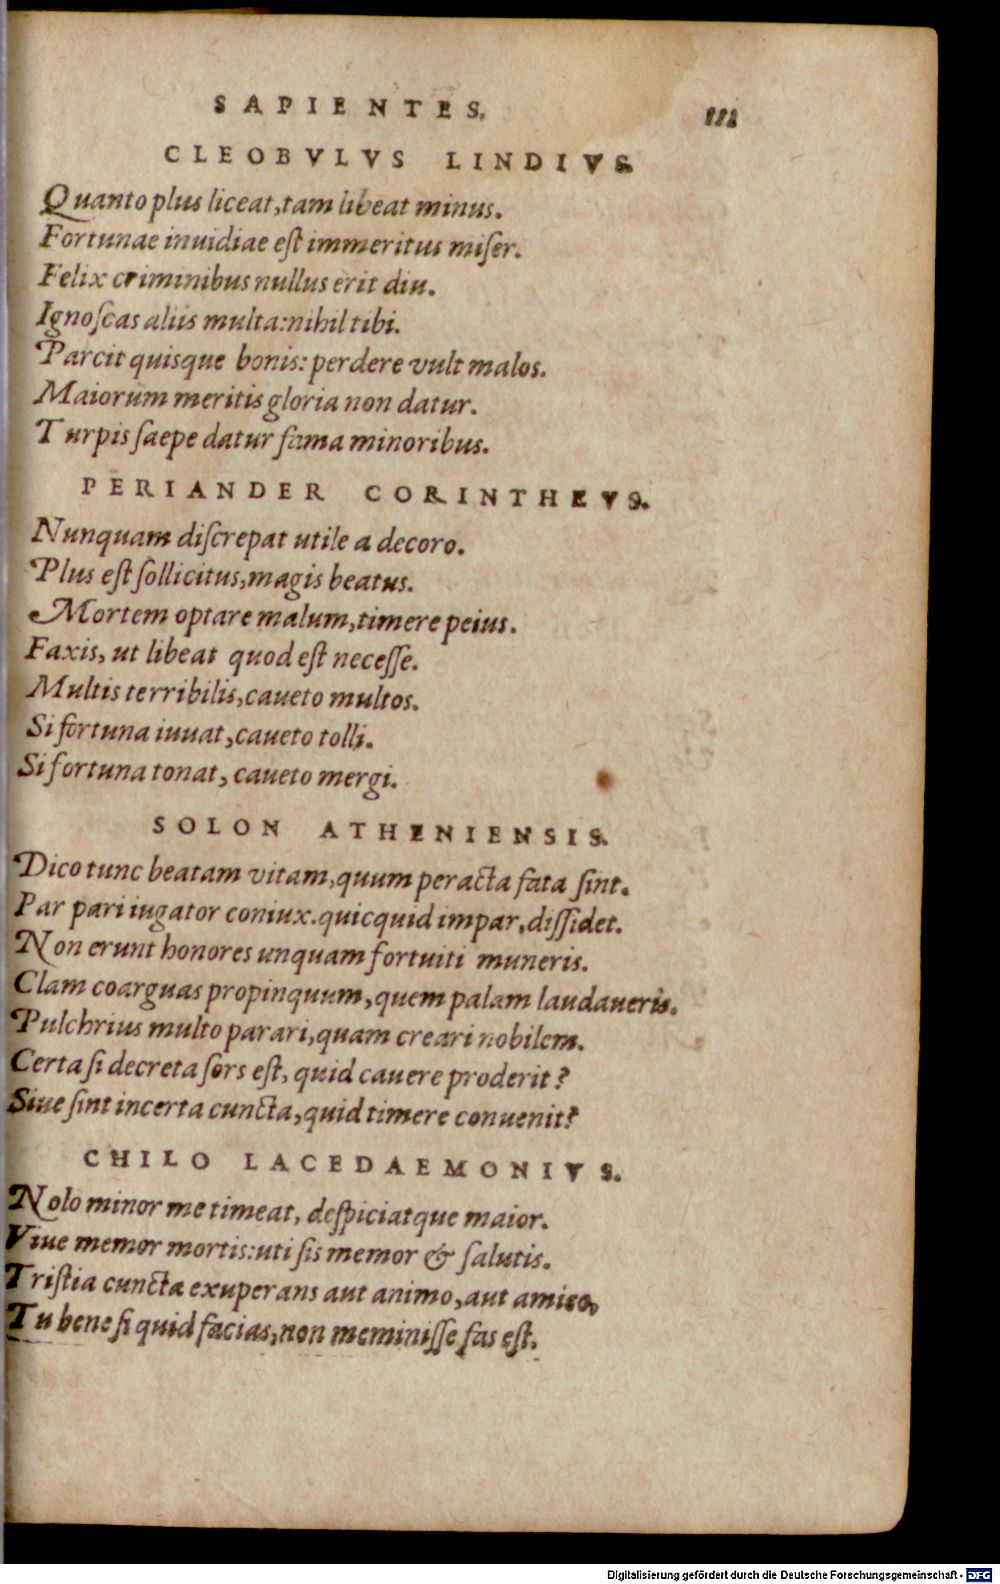 SAPIENTES. 111
CLEOBVLVS LINDIVS.
Quanto plus liceat, tam libeat minus.
Fortunae inuidiae eſt immeritus miſer.
Felix criminibus nullus erit diu.
Ignoſcas aliis multa: nihil tibi.
Parcit quisque bonis: perdere vult malos.
Maiorum meritis gloria non datur.
Turpis ſaepe datur fama minoribus.
PERIANDER CORINTHEVS.
Nunquam diſcrepat utile a decoro.
Plus eſt ſollicitus, magis beatus.
Mortem optare malum, timere peius.
Faxis, ut libeat quod eſt neceſſe.
Multis terribilis, caueto multos.
Si fortuna iuuat, caueto tolli.
Si fortuna tonat, caueto mergi.
SOLON ATHENIENSIS.
Dico tunc beatam vitam, quum peracta fata ſint.
Par pari iugator coniux. quicquid impar, diſſidet.
Non erunt honores unquam fortuiti muneris.
Clam coarguas propinquum, quem palam laudaueris.
Pulchrius multo parari, quam creari nobilem.
Certa ſi decreta ſors eſt, quid cauere proderit?
Siue ſint incerta cuncta, quid timere conuenit?
CHILO LACEDAEMONIVS.
Nolo minor me timeat, deſpiciatque maior.
Viue memor mortis: uti ſis memor & ſalutis.
Triſtia cuncta exuperans aut animo, aut amico,
Tu bene ſi quid facias, non meminiſſe fas eſt.
Digitalisierung gefördert durch die Deutsche Forschungsgemeinschaft - DFG